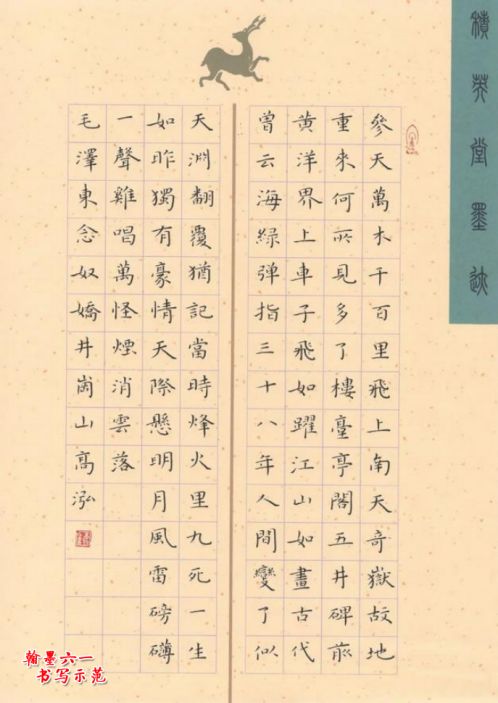 積
堂墨迹
參天萬木千百里飛上南天奇嶽故地
重來何所見多了樓臺亭閣五井碑前
黄洋界上車子飛如躍江山如畫古代
曾云海綠弹指三十八年人間變了似
天淵翻覆猶記當時烽火里九死一生
如昨獨有豪情天際懸明月風雷磅礴
一聲雞唱萬怪煙消雲落
毛澤東念奴嬌井崗山高泓
翰墨六一
书写示范